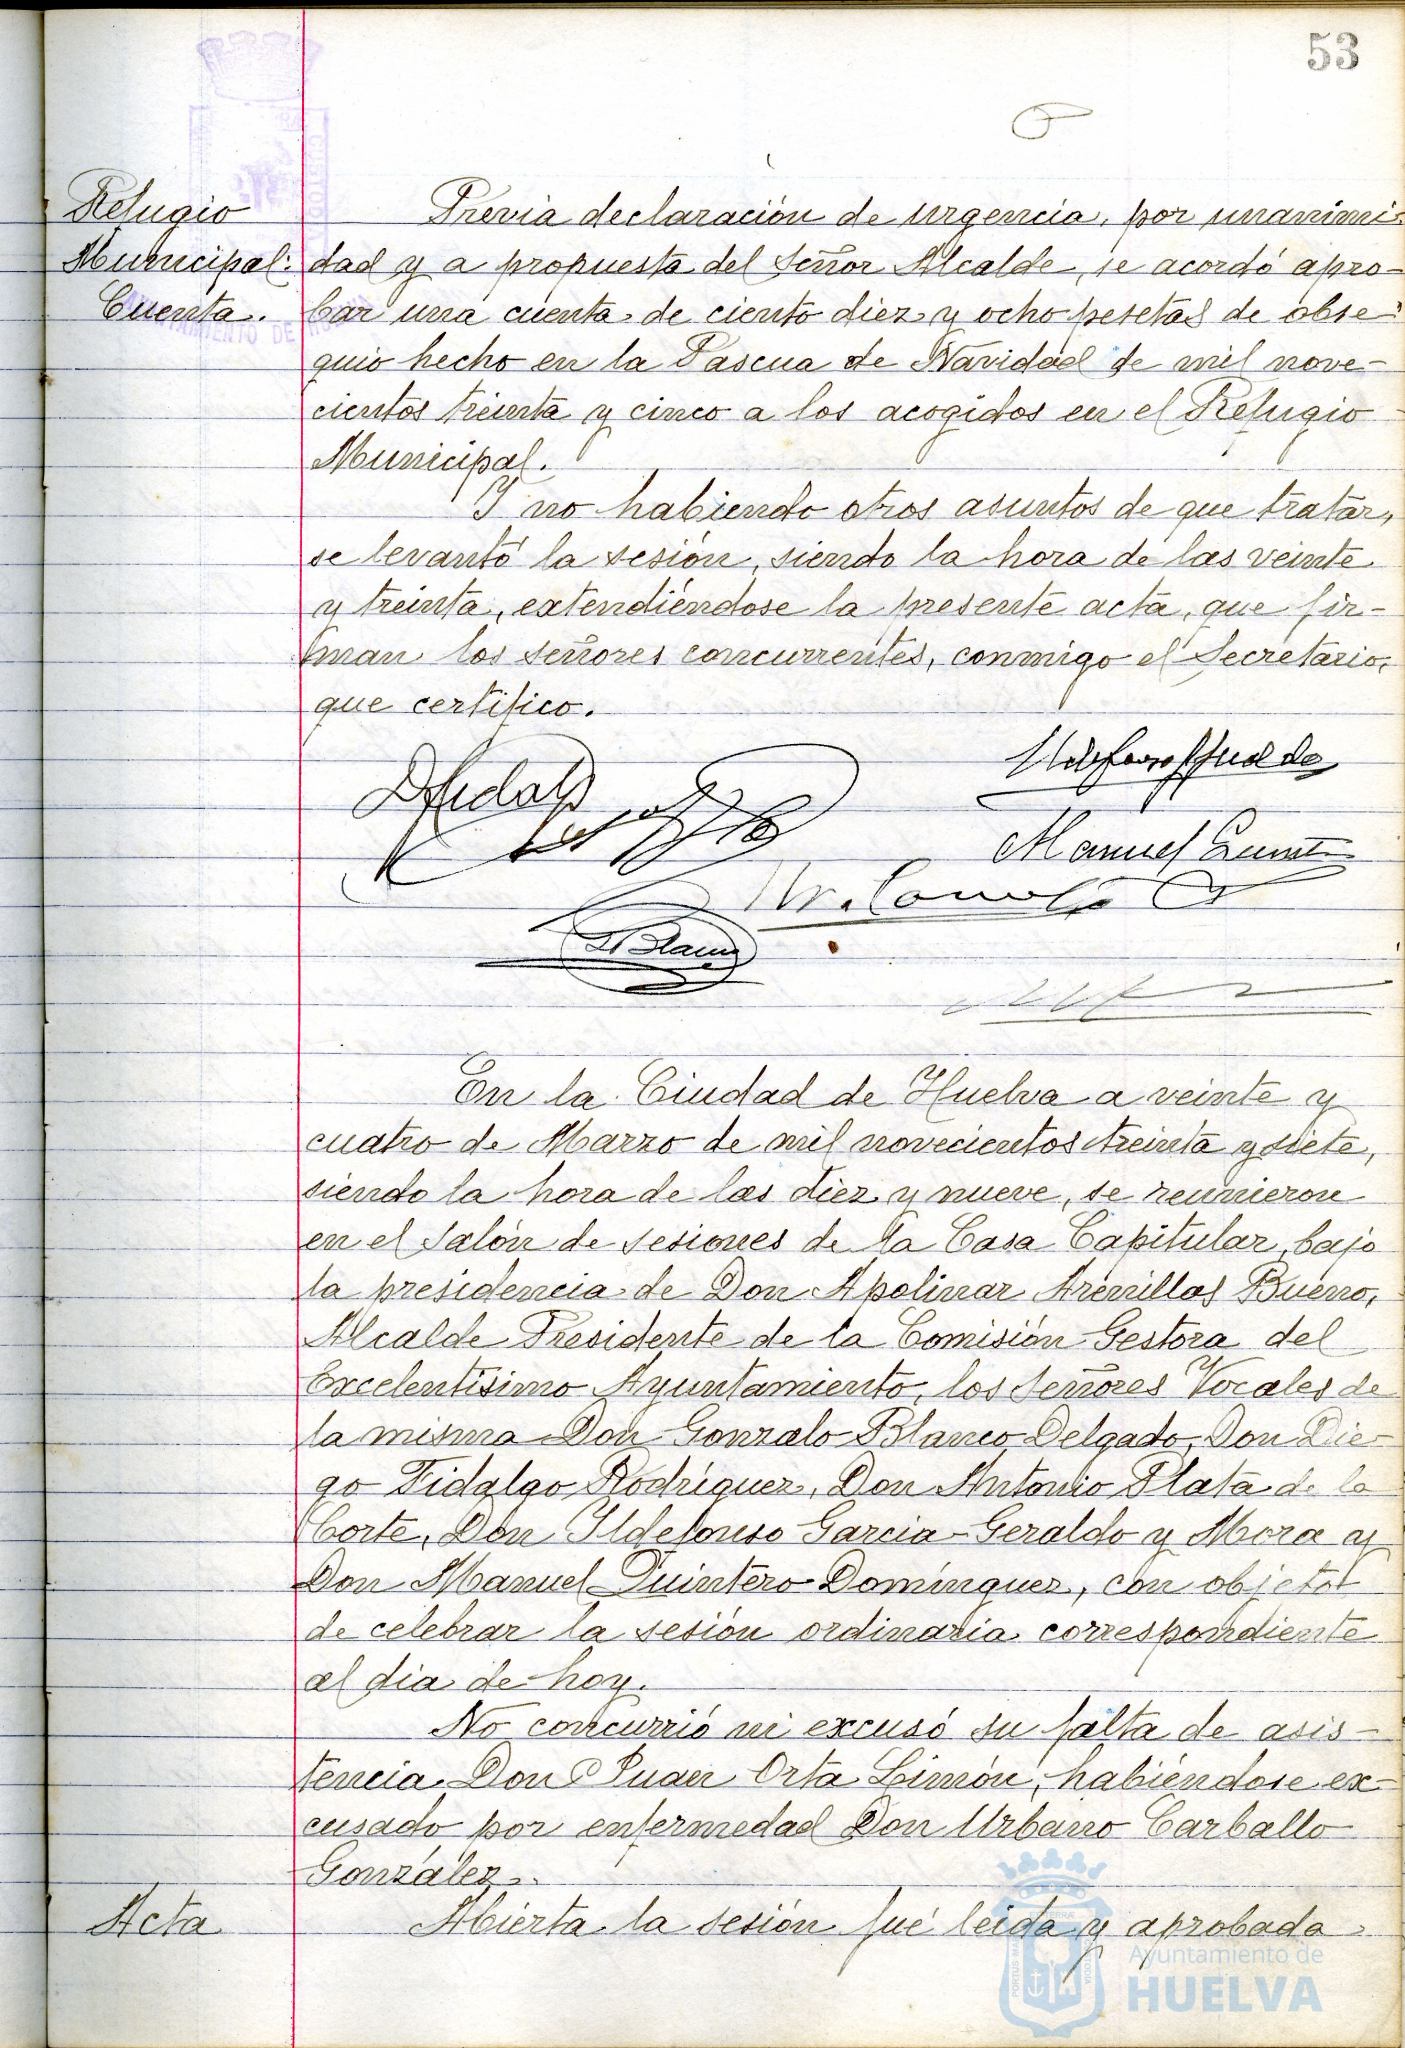 53
Refugio
Municipal:
Cuenta.
Previa declaración de urgencia, por unanimi-
dad y a propuesta del Señor Alcalde, se acordó apro-
bar una cuenta de ciento diez y ocho pesetas de obse-
quio hecho en la Pascua de Navidad de mil nove-
cientos treinta y cinco a los acogidos en el Refugio
Municipal.
Y no habiendo otros asuntos de que tratar,
se levantó la sesión, siendo la hora de las veinte
y treinta, extendiéndose la presente acta, que fir-
man los señores concurrentes, conmigo el Secretario,
que certifico.
Manuel
Blanco
En la Ciudad de Huelva a veinte y
cuatro de Marzo de mil novecientos treinta y siete,
siendo la hora de las diez y nueve, se reunieron
en el salón de sesiones de la Casa Capitular, bajo
la presidencia de Don Apolinar Arenillas Bueno,
Alcalde Presidente de la Comisión Gestora del
Excelentísimo Ayuntamiento, los señores Vocales de
la misma Don Gonzalo Blanco Delgado, Don Die-
go Fidalgo Rodríguez, Don Antonio Plata de la
Corte, Don Ildefonso Garcia-Geraldo y Mora y
Don Manuel Quintero Domínguez, con objeto
de celebrar la sesión ordinaria correspondiente
al dia de hoy.
No concurrió ni excusó su falta de asis-
tencia Don Juan Orta Limón, habiéndose ex-
cusado por enfermedad Don Urbano Carballo
González.
Acta
Abierta la sesión fué leida y aprobada
Ayuntamiento de
HUELVA